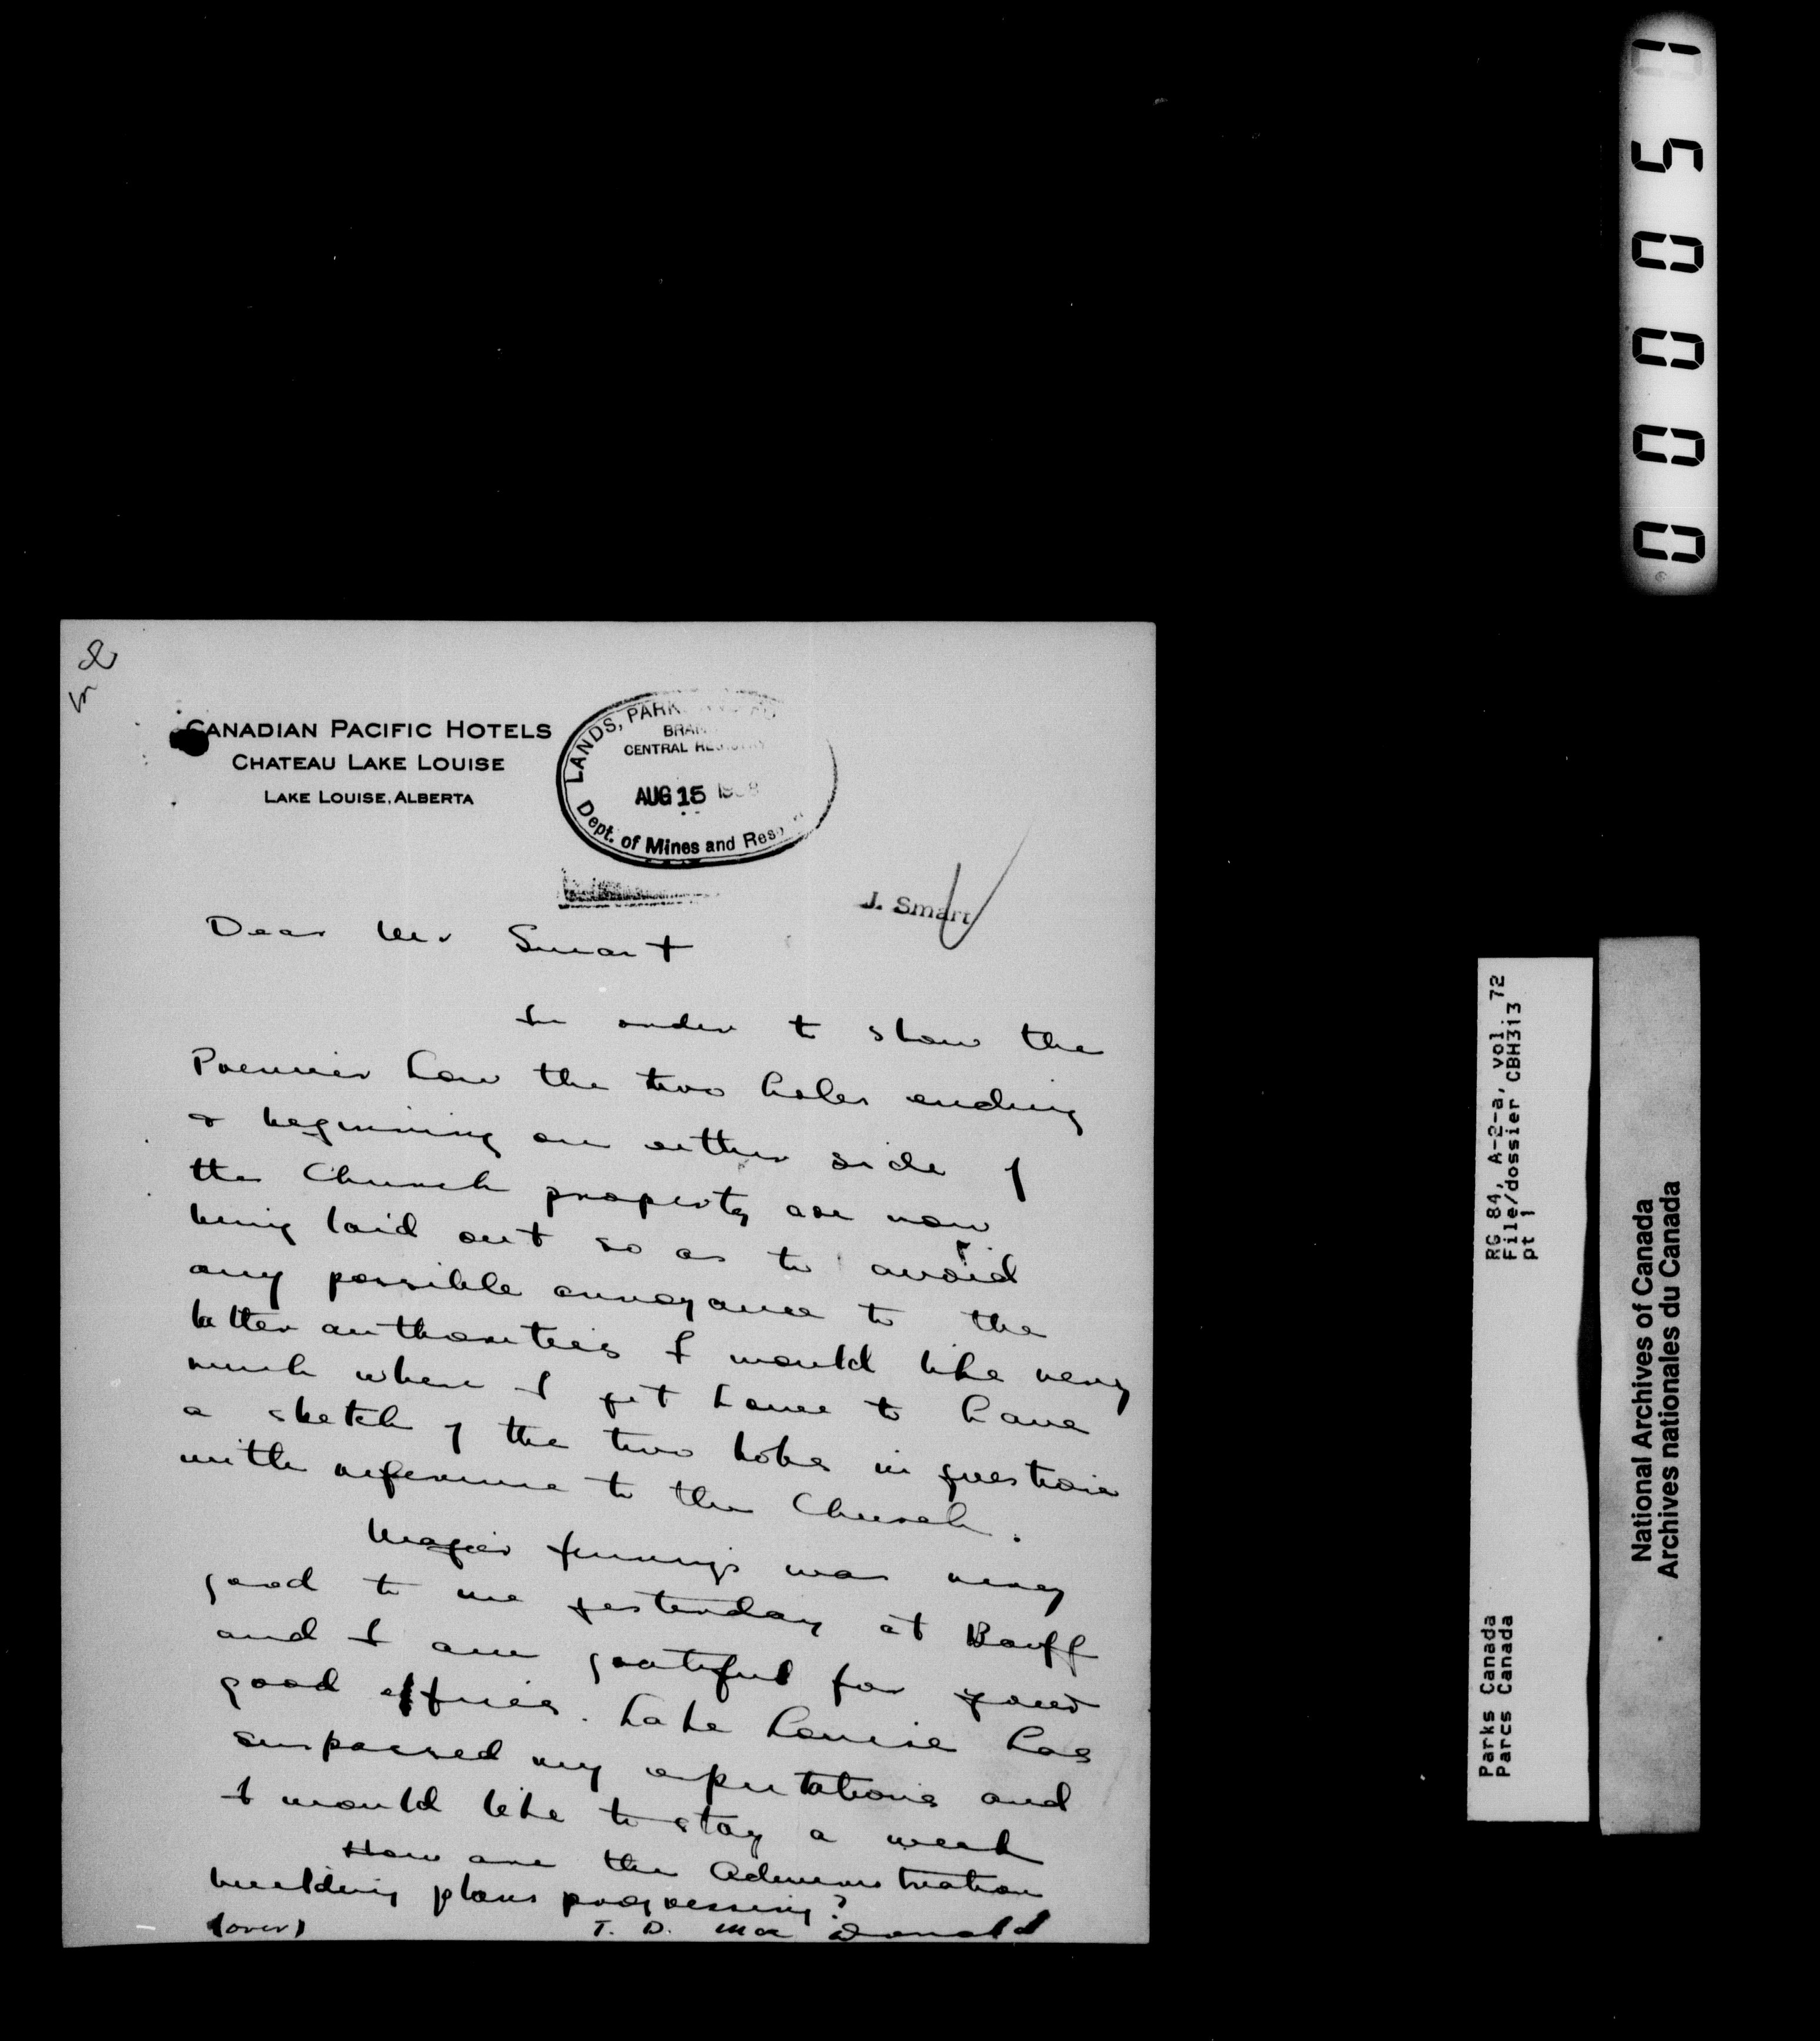 CANADIAN PACIFIC HOTELS
CHATEAU LAKE LOUISE
LAKE LOUISE, ALBERTA
LANDS, PARK
BRAN
CENTRAL REGISTRY
AUG 15 1938
Dept. of Mines and Reso
J. Smart
Dear Mr Smart
In order to show the
Premier how the two holes ending
& beginning on either side of
the Church property are now
being laid out so as to avoid
any possible annoyance to the
latter authorities I would like very
much when I get home to have
a sketch of the two holes in question
with reference to the Church.
Major Jennings was very
good to me yesterday at Banff
and I am grateful for your
good offices. Lake Louise has
surpassed my expectations and
I would like to stay a week
How are the Administration
building plans progressing?
(over) T. D. MacDonald
000051
RG 84, A-2-a, vol. 72
File/dossier CBH313
pt 1
Parks Canada
Parcs Canada
National Archives of Canada
Archives nationales du Canada